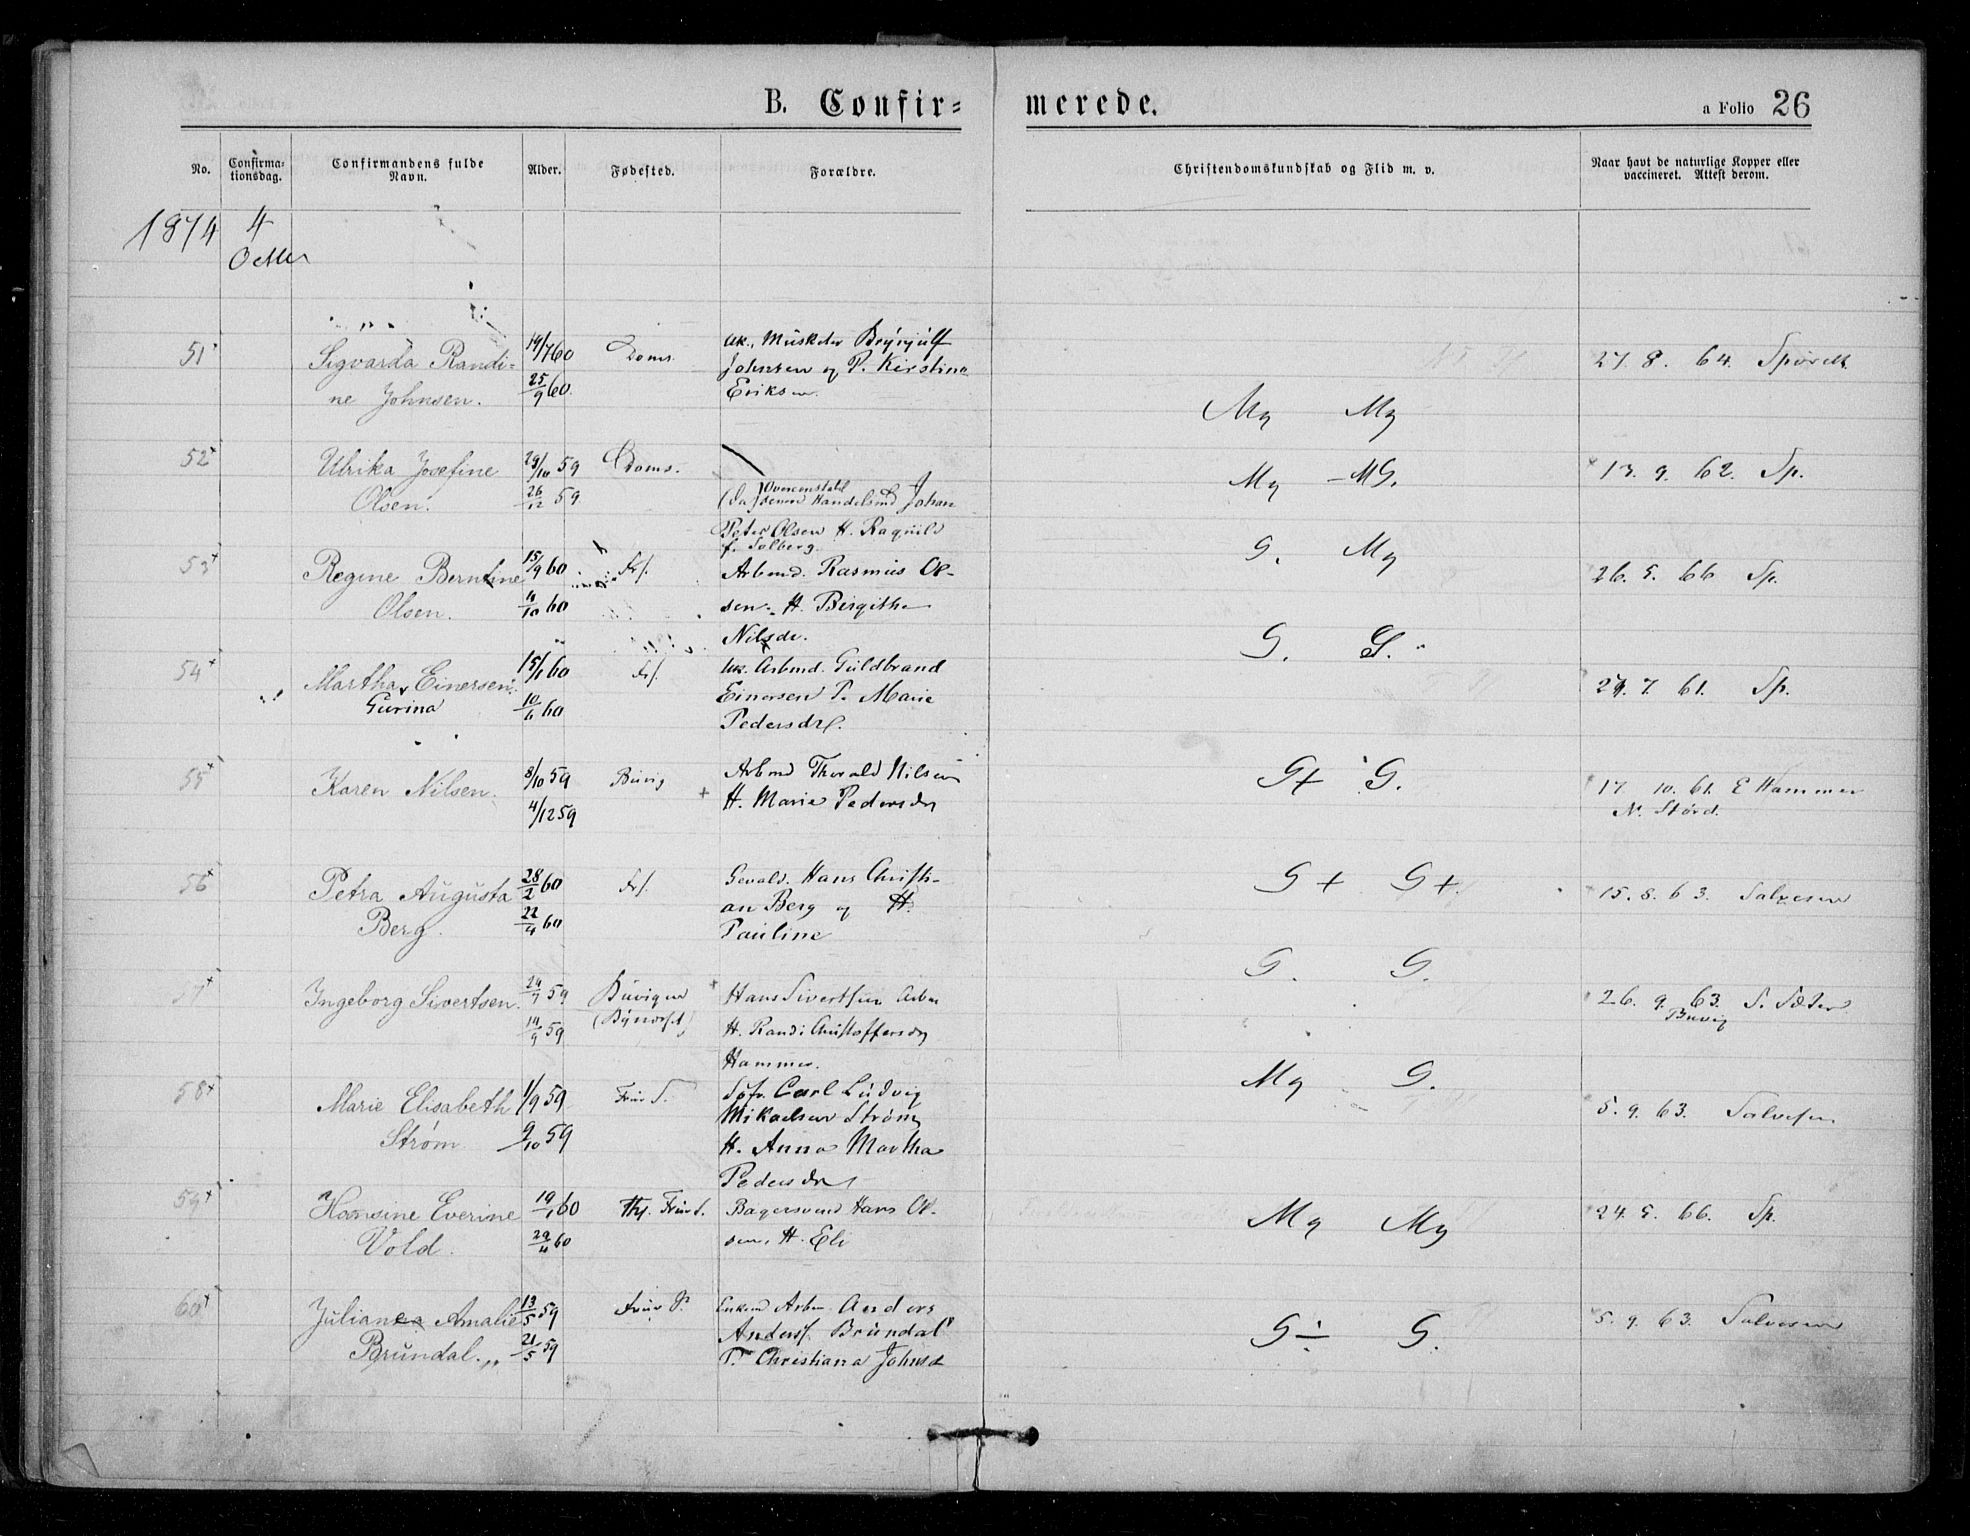 B. Confir=merede.
a Folio 26
No. Confirma=tionsdag. Confirmandens fulde Navn. Alder. Fødested. Forældre. Christendomskundskab og Flid m. v. Naar havt de naturlige Kopper eller vaccineret. Attest derom.
1874 4
51 Sigvarda Randi= 19/7 60 Doms. Musketer Brynjulf 27. 8. 64.
Johnsen og P. Kirstine
ne Johnsen. 25/9 60 Eriksen
Mg Mg
52 Ulrika Josefine 29/10 59 Doms. Mg MG. 13. 9. 62. Sp.
Olsen. 26/12 59 Handelsmd Johan
Peter Olsen H. Ragnild
f. Solberg.
G. Mg
53 Regine Berntine 15/9 60 Frf. Arbmd. Rasmus Ol- 26. 5. 66 Sp.
Olsen. 4/10 60 sen. H. Birgithe
Nilsdr.
G. G.
54 Martha Einersen 15/1 60 Frf. Arbmd. Guldbrand 29. 7. 61. Sp.
Gurina 10/6 60 Einersen P. Marie
Pedersdr.
55 Karen Nilsen. 8/10 59 Buvig Arbmd Thorald Nilsen G+ G. 17. 10. 61. E Hammer
4/12 59 H. Marie Pedersdr N. Størd.
56 Petra Augusta 28/2 60 Frf. Gevald. Hans Christi- G+ G+. 15. 8. 63. Salvesen
Berg. 22/4 60 an Berg og H.
Pauline
G. G.
57 Ingeborg Sivertsen. 24/7 59 Buvigen Hans Sivertsen Arbm 26. 9. 63. S. Sæter
Buvig
(Bynæsset) 11/9 59 H. Randi Christoffersdr
Hammer.
Mg G.
58 Marie Elisabeth 1/9 59 Frue S. Søfr. Carl Ludvig 5. 9. 63. Salvesen
Mikaelsen Strøm
Strøm. 9/10 59 H. Anna Martha
Pedersdr
59 Hansine Everine 19/1 60 Thj. Frue S. Bagersvend Hans Ol- Mg Mg 24. 5. 66. Sp.
Vold. 29/4 60 sen. H. Eli
60 Juliane Amalie 13/5 59 Frue S. Enkemd Arbm. Anders G÷ G. 5. 9. 63. Salvesen
Brundal. 21/5 59 Anderss. Brundal
P. Christiana Johnsd